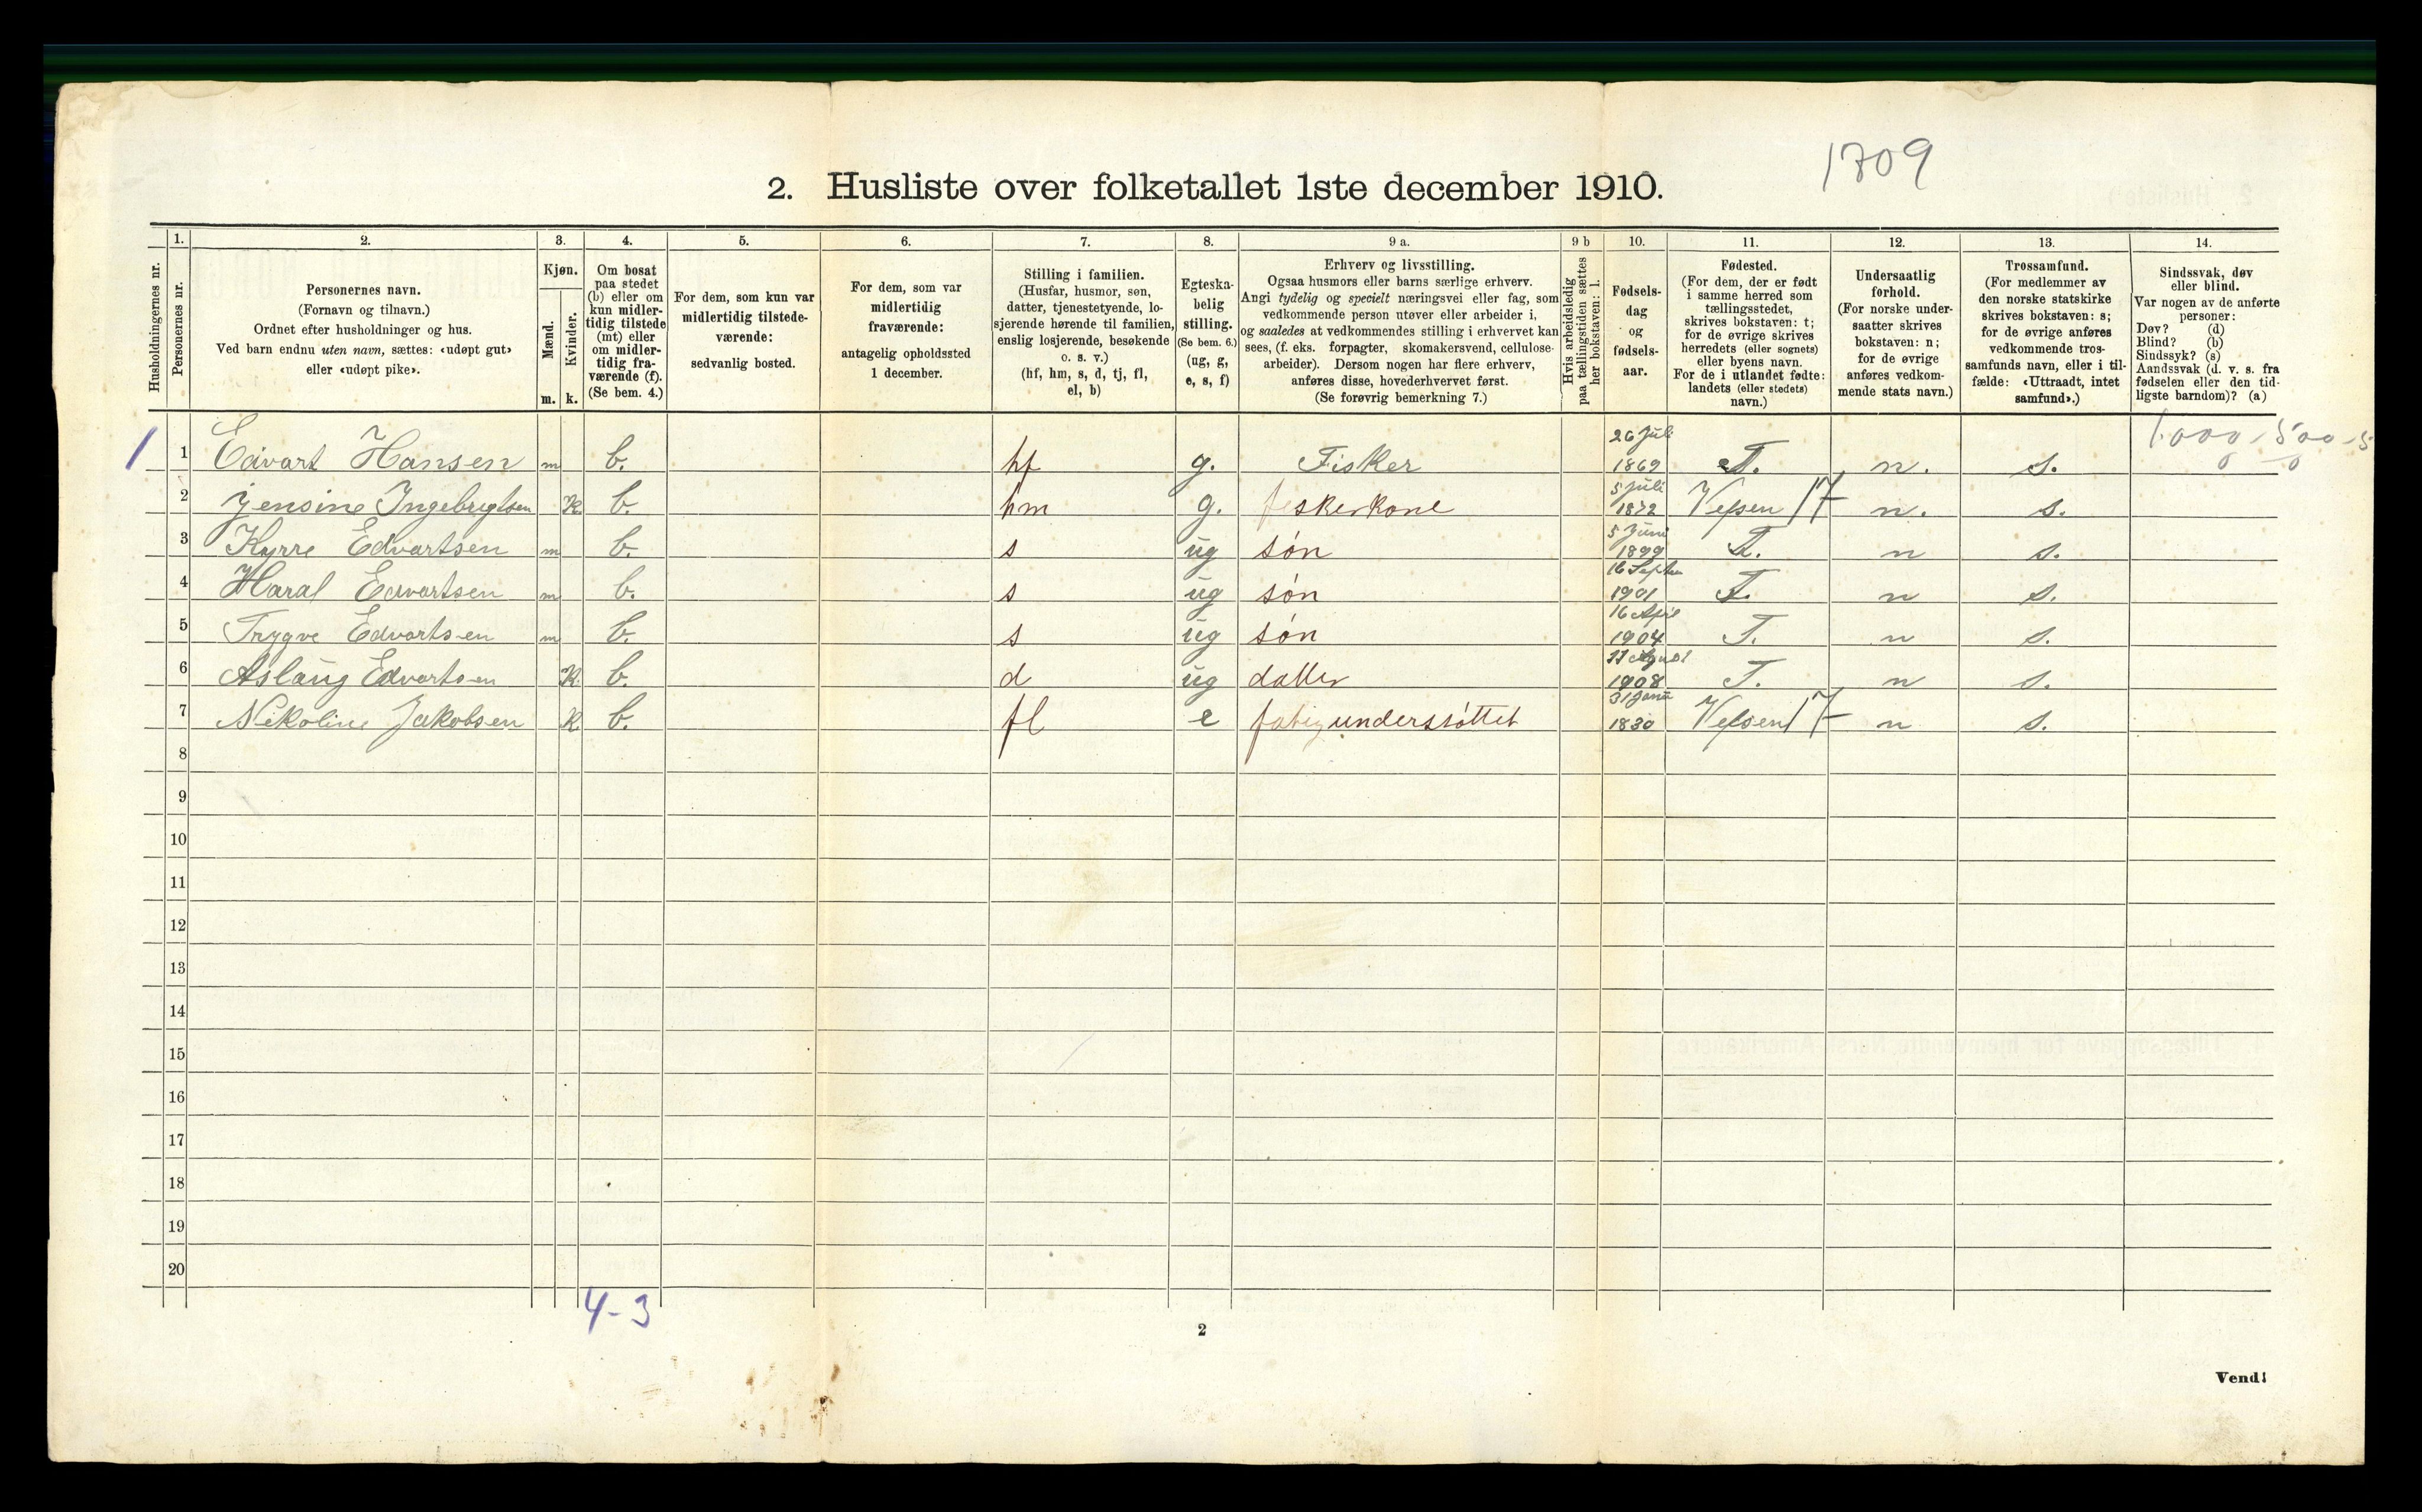 1709
2. Husliste over folketallet 1ste december 1910.
Husholdningernes nr.
1.
Personernes nr.
2.
Personernes navn.
(Fornavn og tilnavn.)
Ordnet efter husholdninger og hus.
Ved barn endnu uten navn, sættes: «udøpt gut»
eller «udøpt pike».
3.
Kjøn.
Mænd.
Kvinder.
m. k.
4.
Om bosat
paa stedet
(b) eller om
kun midler-
tidig tilstede
(mt) eller
om midler-
tidig fra-
værende (f).
(Se bem. 4.)
5.
For dem, som kun var
midlertidig tilstede-
værende:
sedvanlig bosted.
6.
For dem, som var
midlertidig
fraværende:
antagelig opholdssted
1 december.
7.
Stilling i familien.
(Husfar, husmor, søn,
datter, tjenestetyende, lo-
sjerende hørende til familien,
enslig losjerende, besøkende
o. s. v.)
(hf, hm, s, d, tj, fl,
el, b)
8.
Egteska-
belig
stilling.
(Se bem. 6.)
(ug, g,
e, s, f)
9 a.
Erhverv og livsstilling.
Ogsaa husmors eller barns særlige erhverv.
Angi tydelig og specielt næringsvei eller fag, som
vedkommende person utøver eller arbeider i,
og saaledes at vedkommendes stilling i erhvervet kan
sees, (f. eks. forpagter, skomakersvend, cellulose-
arbeider). Dersom nogen har flere erhverv,
anføres disse, hovederhvervet først.
(Se forøvrig bemerkning 7.)
9 b
Hvis arbeidsledig
paa tællingstiden sættes
her bokstaven: l.
10.
Fødsels-
dag
og
fødsels-
aar.
11.
Fødested.
(For dem, der er født
i samme herred som
tællingsstedet,
skrives bokstaven: t;
for de øvrige skrives
herredets (eller sognets)
eller byens navn.
For de i utlandet fødte:
landets (eller stedets)
navn.)
12.
Undersaatlig
forhold.
(For norske under-
saatter skrives
bokstaven: n;
for de øvrige
anføres vedkom-
mende stats navn.)
13.
Trossamfund.
(For medlemmer av
den norske statskirke
skrives bokstaven: s;
for de øvrige anføres
vedkommende tros-
samfunds navn, eller i til-
fælde: «Uttraadt, intet
samfund».)
14.
Sindssvak, døv
eller blind.
Var nogen av de anførte
personer:
Døv? (d)
Blind? (b)
Sindssyk? (s)
Aandssvak (d. v. s. fra
fødselen eller den tid-
ligste barndom)? (a)
1 1 Edvart Hansen m b. hf g. Fisker 26 Juli 1869 T. n. s.
2 Jensine Ingebrigtsen K. b. hm g. fiskerkone 5 Juli 1872 Vefsen 17 n. s.
3 Kyrre Edvartsen m b. s ug søn 5 Juni 1899 T. n s.
4 Haral Edvartsen m b. s ug søn 16 Septm 1901 T. n s.
5 Trygve Edvartsen m b. s ug søn 16 April 1904 T. n s.
6 Aslaug Edvartsen K. b. d ug datter 11 August 1908 T. n s.
7 Nikoline Jakobsen K. b. fl e fatigunderstøttet 31 Janu 1830 Vefsen 17 n s.
8
9
10
11
12
13
14
15
16
17
18
19
20
4-3
2
Vend!